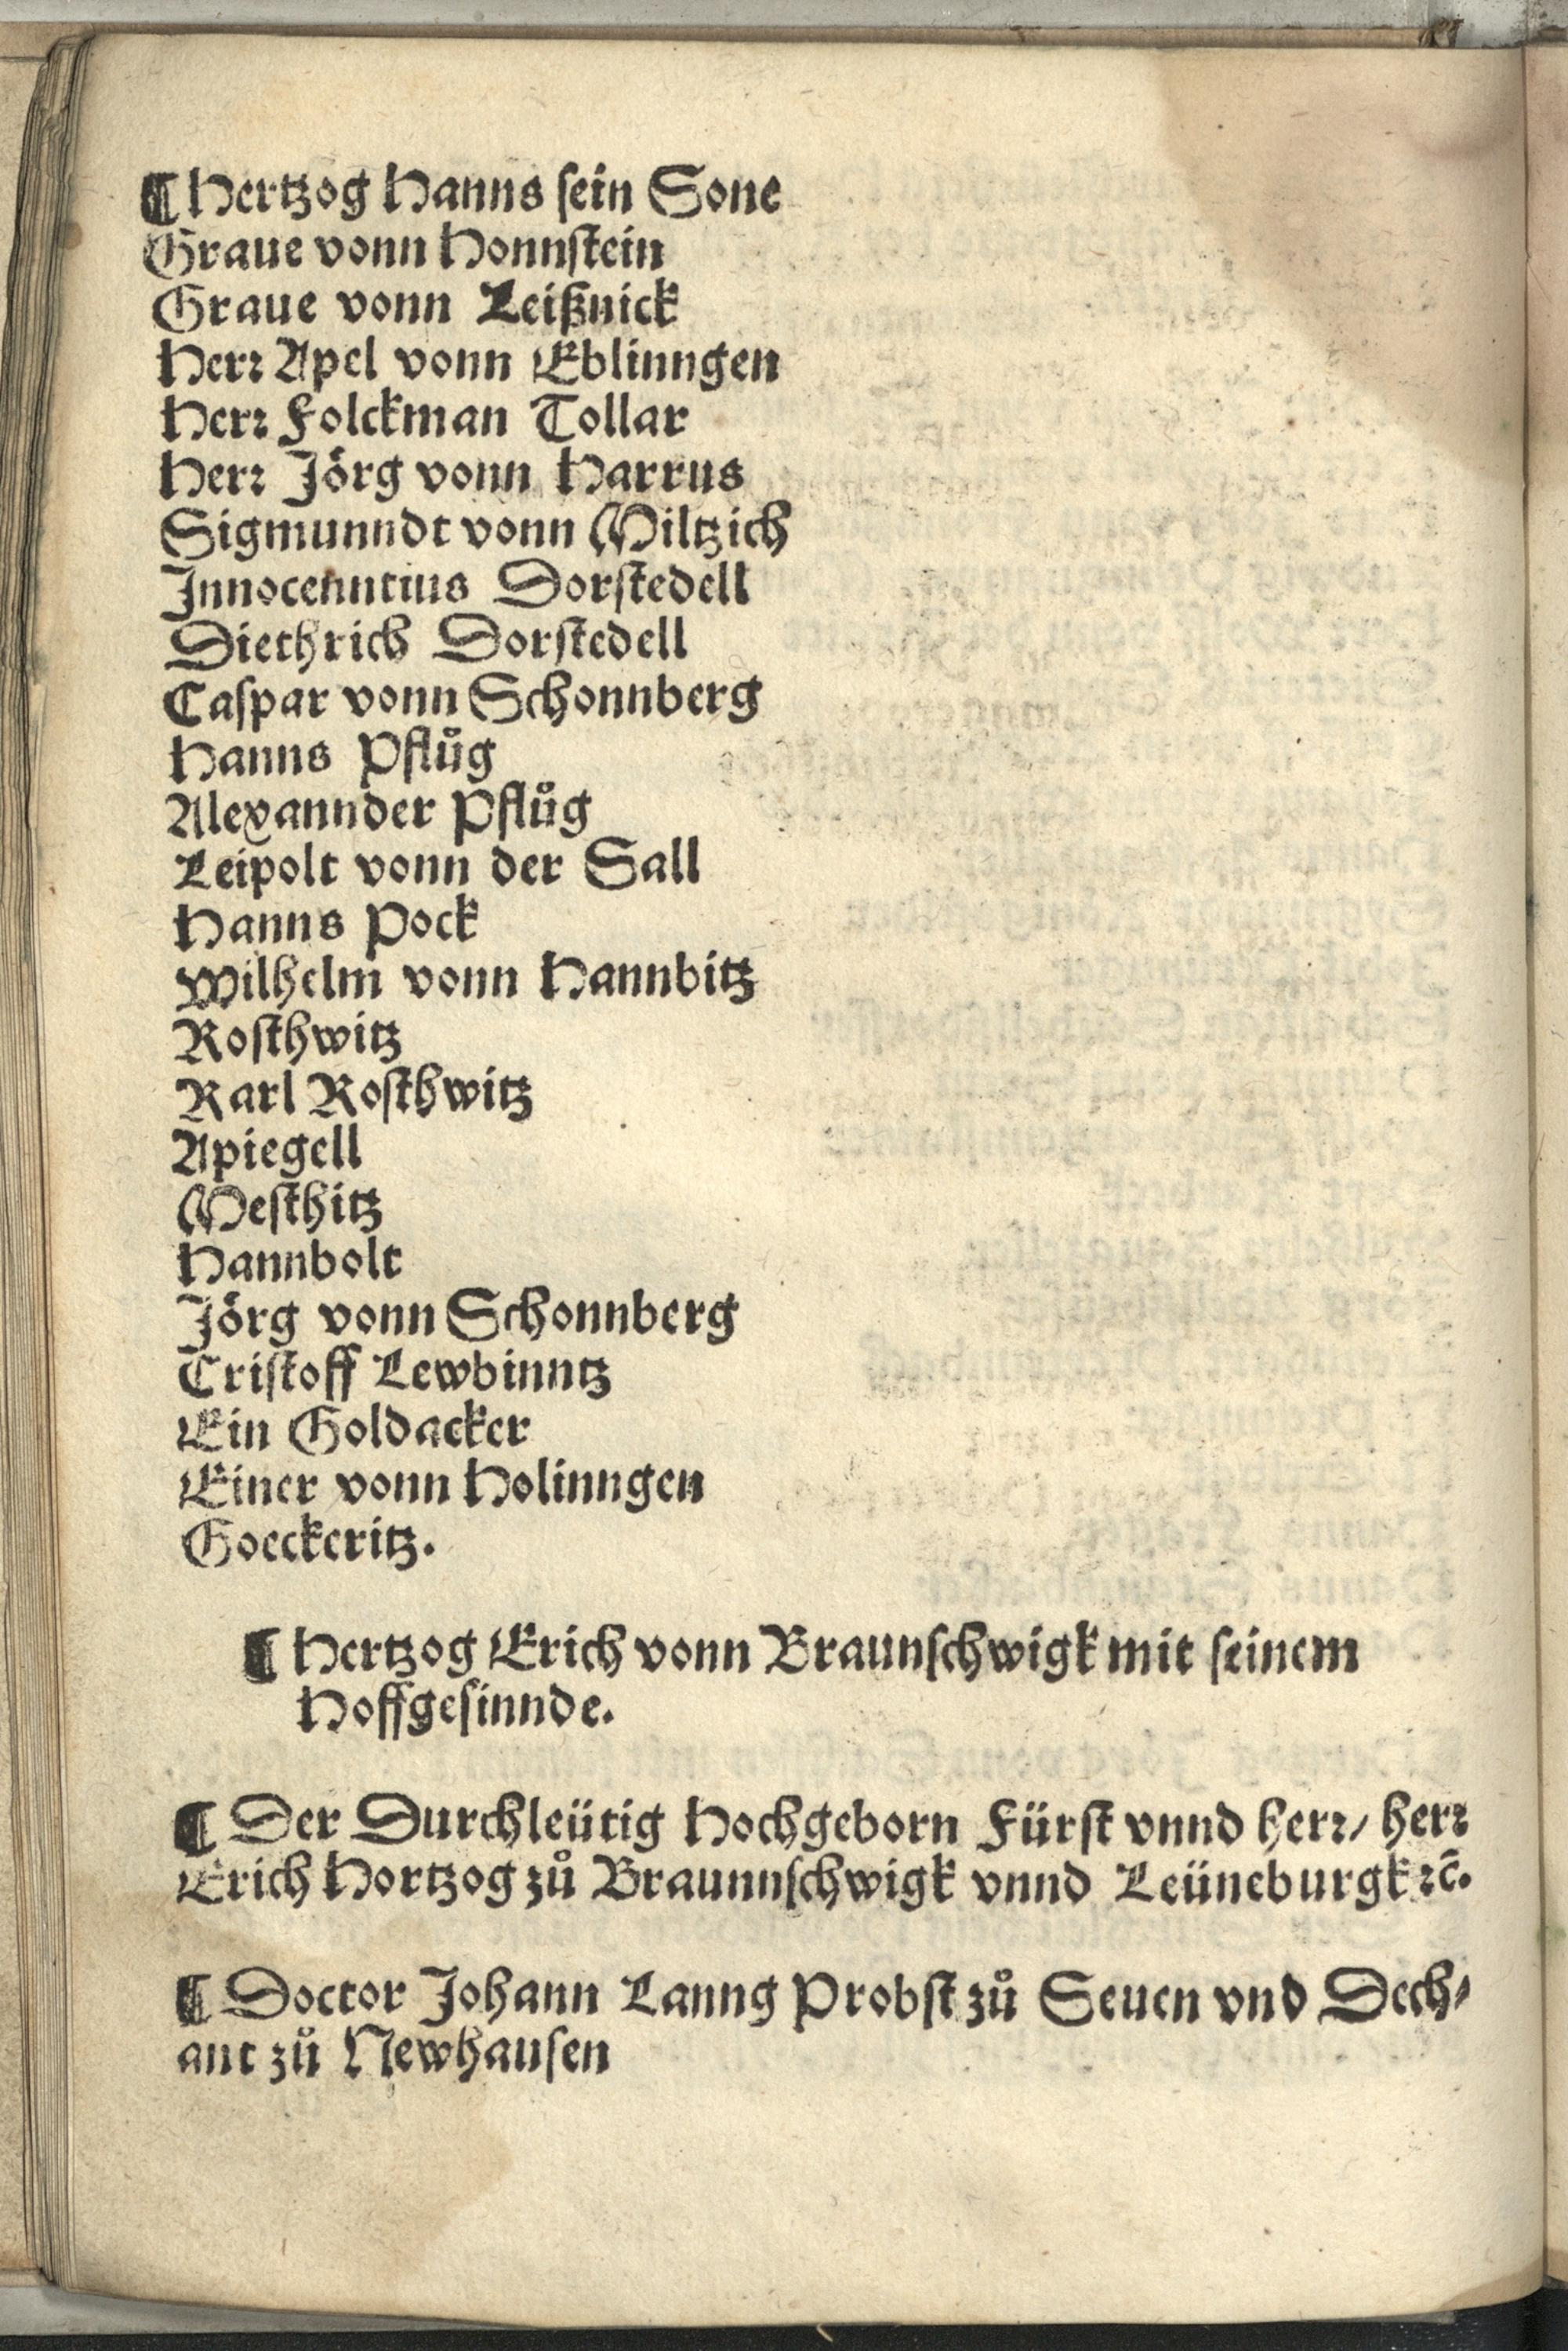 ¶ Hertzog Hanns ſein Sone
Graue vonn Honnſtein
Graue vonn Leißnick
Herꝛ Apel vonn Eblinngen
Herꝛ Folckman Tollar
Herꝛ Jörg vonn Harrus
Sigmunndt vonn Miltzich
Innocenntius Dorſtedell
Diethrich Dorſtedell
Caſpar vonn Schonnberg
Hanns Pflůg
Alexannder Pflůg
Leipolt vonn der Sall
Hanns Pock
Wilhelm vonn Hannbitz
Roſthwitz
Karl Roſthwitz
Apiegell
Meſthitz
Hannbolt
Jörg vonn Schonnberg
Criſtoff Lewbinntz
Ein Goldacker
Einer vonn Holinngen
Goeckeritz.
¶ Hertzog Erich vonn Braunſchwigk mit ſeinem
Hoffgeſinnde.
¶ Der Durchleütig Hochgeborn Fürſt vnnd herꝛ/ herꝛ
Erich Hortzog zů Braunnſchwigk vnnd Leüneburgk ꝛc̄.
¶ Doctor Johann Lanng Probſt zů Seuen vnd Dech⸗
ant zů Newhauſen